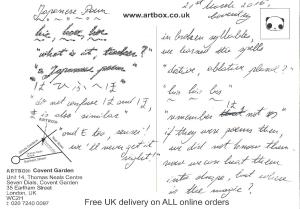 Japanese Poem
www.artbox.co.uk
21st March 2016,
Coventry
hic, haec, hoc
"what is it, teacher?"
"a Japanese poem"
は ひ ふ へ ほ
do not confuse は and ほ,
it is also similar"
and ... too, sensei!
we'll never get it
right!
in broken syllables,
we learned the spells
"dative, ablative plural?"
"his his his"
"remember は not ほ"
if they were poems then,
we did not know them
now we can hurt them
into shape, but where
is the magic?
ARTBOX: Covent Garden
Unit 14, Thomas Neals Centre
Seven Dials, Covent Garden
35 Earlham Street
London, UK
WC2H
t 020 7240 0097
Free UK delivery on ALL online orders